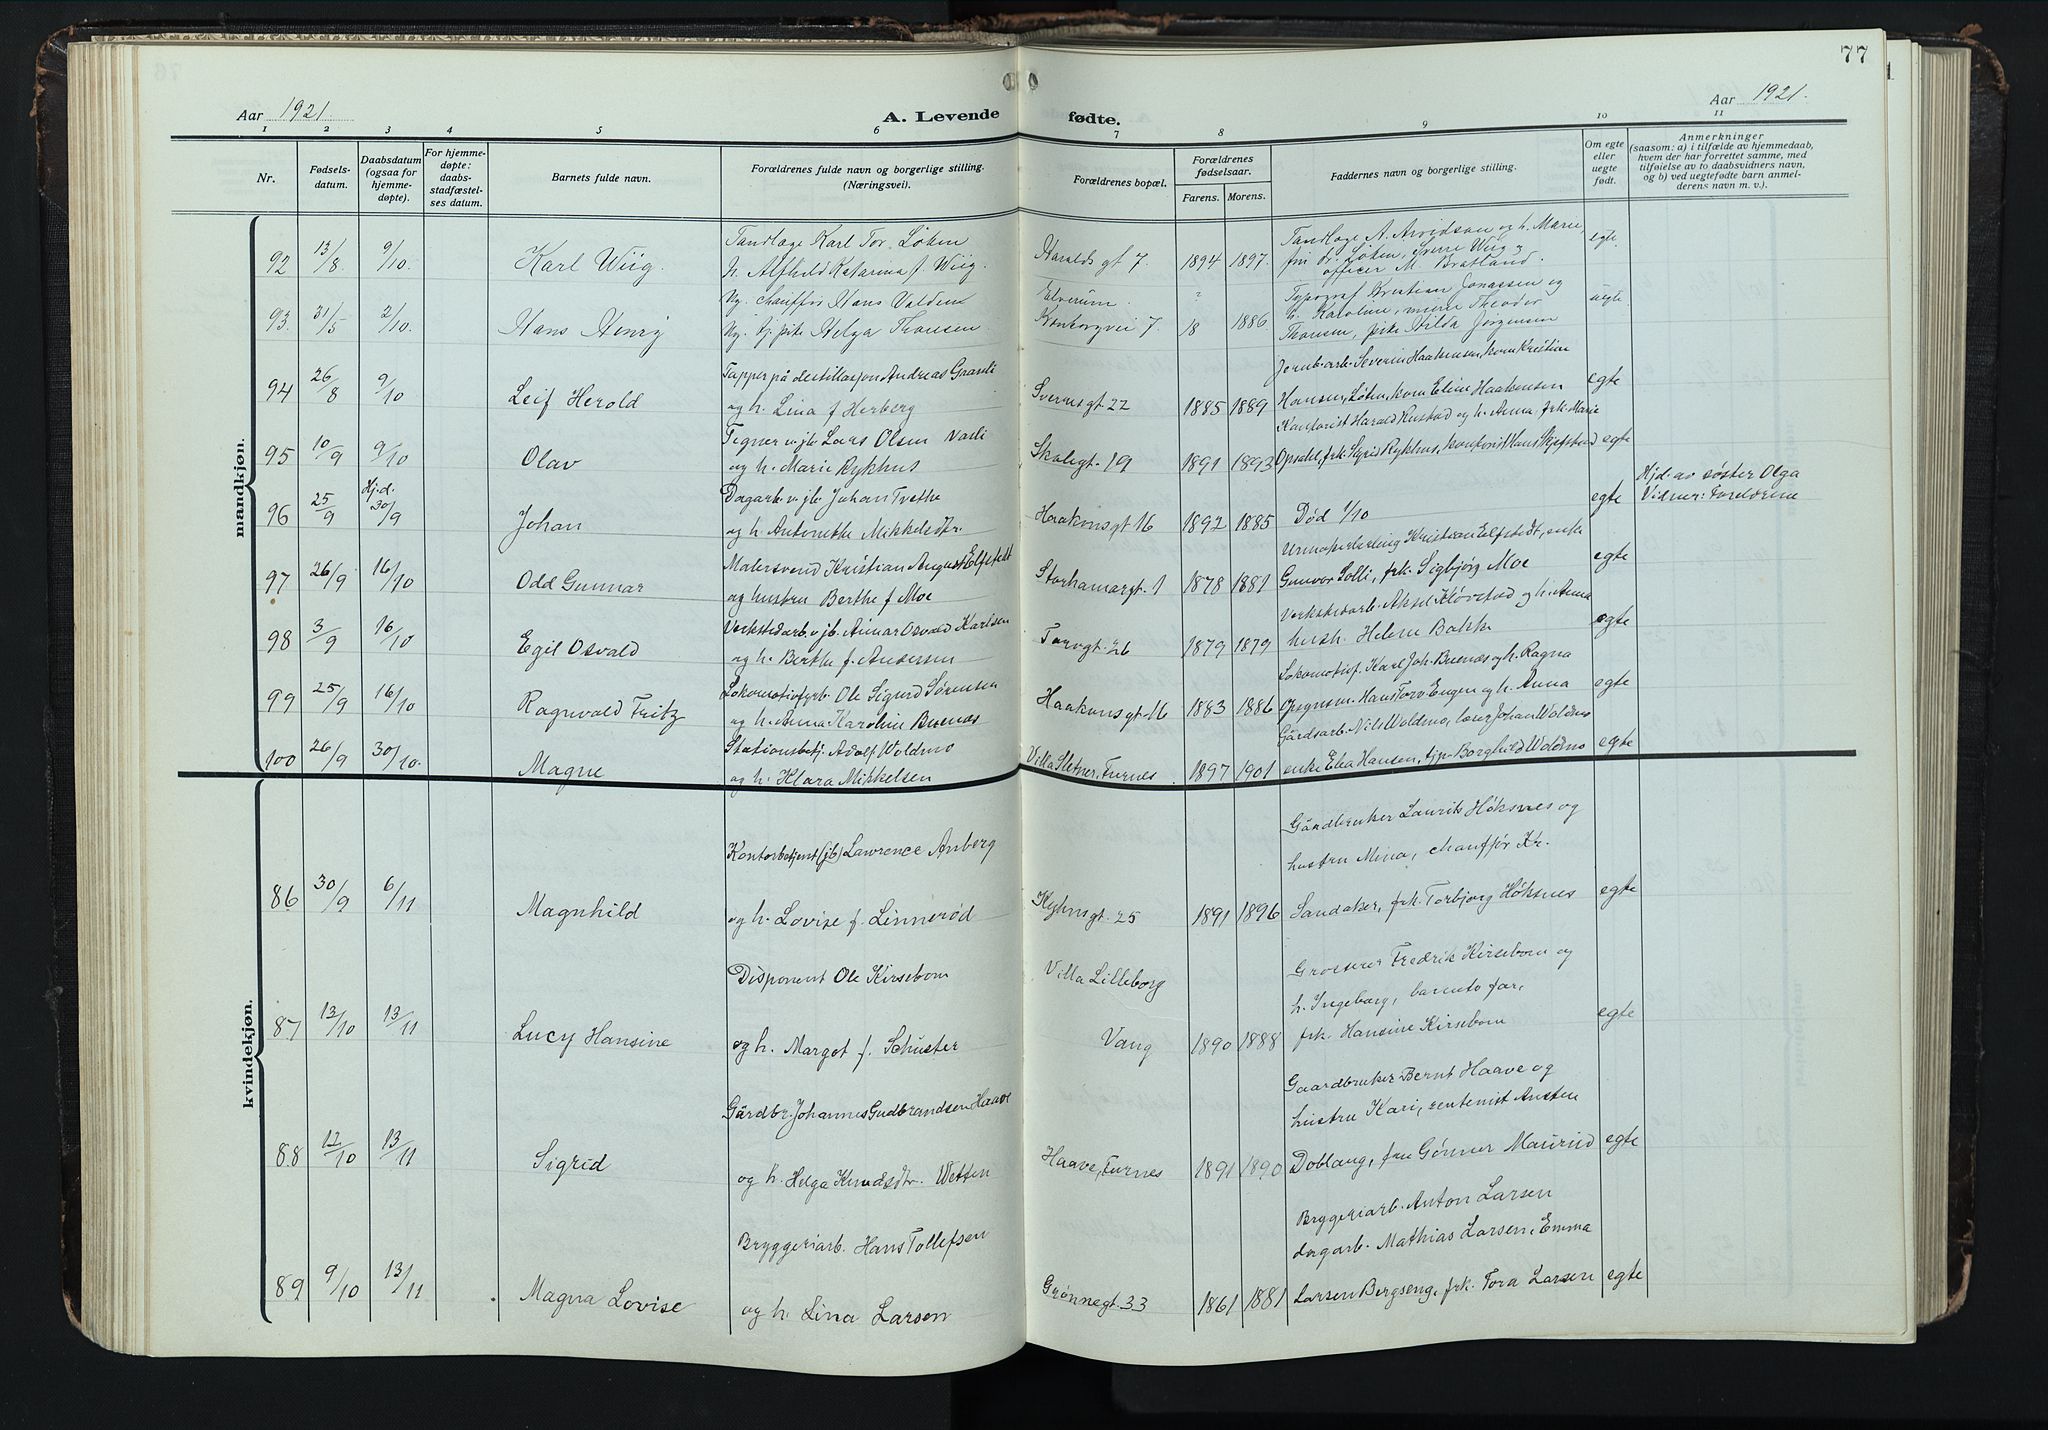 77
Aar 1921.
A. Levende
fødte.
Aar 1921.
1 2 3 4 5 6 7 8 9 10 11
Nr.
Fødsels-
datum.
Daabsdatum
(ogsaa for
hjemme-
døpte).
For hjemme-
døpte:
daabs-
stadfæstel-
ses datum.
Barnets fulde navn.
Forældrenes fulde navn og borgerlige stilling.
(Næringsvei).
Forældrenes bopæl.
Forældrenes
fødselsaar.
Farens. Morens.
Faddernes navn og borgerlige stilling.
Om egte
eller
uegte
født.
Anmerkninger
(saasom: a) i tilfælde av hjemmedaab,
hvem der har forrettet samme, med
tilføielse av to daabsvidners navn,
og b) ved uegtefødte barn anmel-
derens navn m. v.).
mandkjøn.
92 13/8 9/10. Karl Wiig.
Tandlæge Karl Tor. Løken
h. Alfhild Katarina f. Wiig.
Haralds gt 7. 1894 1897.
Tandlæge A. Arvidson og h. Marie,
fru Dr. Løken, Sverre Wiig og
officer M. Bratland.
egte.
93. 31/5 2/10. Hans Henry
Ug. chauffør Hans Valden
Ug. tj. pike Helga Thansen
Elverum. ?
7 18 1886
Typograf Kristian Jonassen og
h. Karoline, Theodor
Thansen, pike Hilda Jørgensen
uegte.
94 26/8 9/10 Leif Herold
Tapper på destillasjon Andreas Granli
og h. Lina f Herberg
Sverresgt 22 1885 1889
Jernb-arb. Severin Haakensen, kone Kristine
Hansen, Løten, kone Eline Haakensen
egte
95 10/9 9/10 Olav
Tegner v. jb. Lars Olsen Varli
og h. Marie Rykhus
Skolegt. 19 1891 1893
Kontorist Harald Rustad og h. Anna, frk. Marie
Opsdal, frk. Sigrid Rykhus, kontorist Hans Skjefstad
egte
96 25/9 Hj.d. 30/9 Johan
Dagarb. v. jb. Johan Tvethe
og h. Antonette Mikkelsdtr.
Haakonsgt 16 1892 1885
Død 1/10
egte
Hjd. av søster Olga
Vidner: Forældrene
97 26/9 16/10 Odd Gunnar
Malersvend Kristian August Elfstedt
og hustru Berthe f Moe
Storhamargt. 1 1878 1881
Urmakerlærling Kristian Elfstedt, enke
Gunvor Solli, frk. Sigbjørg Moe
egte
98 3/9 16/10 Egil Osvald
Verkstedarb. v. jb. Einar Osvald Karlsen
og h. Berthe f. Andersen
Torvgt. 26 1879 1879
Verkstedarb. Aksel Kløvstad og h. Anna
hush. Helene Bakke
egte
99 25/9 16/10 Ragnvald Fritz
Lokomotivfyrb. Ole Sigurd Sørensen
og h. Anna Karoline Buenæs
Haakonsgt. 16 1883 1886
Lokomotivf. Karl Joh. Buenæs og h. Ragna
opsynsm. Hans Torv Engen og h. Anna
egte
100 26/9 30/10. Magne
Stationsbetj. Adolf Woldmo
og h. Klara Mikkelsen
Villa Sletner, Furnes 1897 1901
Gårdsarb. Nils Woldmo, lærer Johan Woldmo
enke Elea Hansen, tjp. Borghild Woldmo
egte
kvindekjøn.
86 30/9 6/11 Magnhild
Kontorbetjent (jb) Lawrence Anberg
og h. Lovise f. Linnerød
Kyhnsgt. 25 1891 1896
Gårdbruker Laurits Høksnes og
hustru Mina, chauffør Kr.
Sandaker, frk. Torbjørg Høksnes
egte
87 13/10 13/11 Lucy Hansine
Disponent Ole Kirsebom
og h. Margot f. Schuster
Villa Lilleborg
Vang 1890 1888
Grosserer Fredrik Kirsebom og
h. Ingeborg, barnets far,
frk. Hansine Kirsebom
egte
88 12/10 13/11 Sigrid
Gårdbr. Johannes Gudbrandsen Haave
og h. Helga Knudsdtr. Wetten
Haave, Furnes 1891 1890
Gaardbruker Bernt Haave og
hustru Kari, rentenist Austen
Doblaug, fru Gønner Maurud
egte
89 9/10 13/11 Magna Lovise
Bryggeriarb. Hans Tollefsen
og h. Lina Larsen
Grønnegt. 33 1861 1881
Bryggeriarb. Anton Larsen
dagarb. Mathias Larsen, Emma
Larsen Bergseng, frk. Tora Larsen
egte